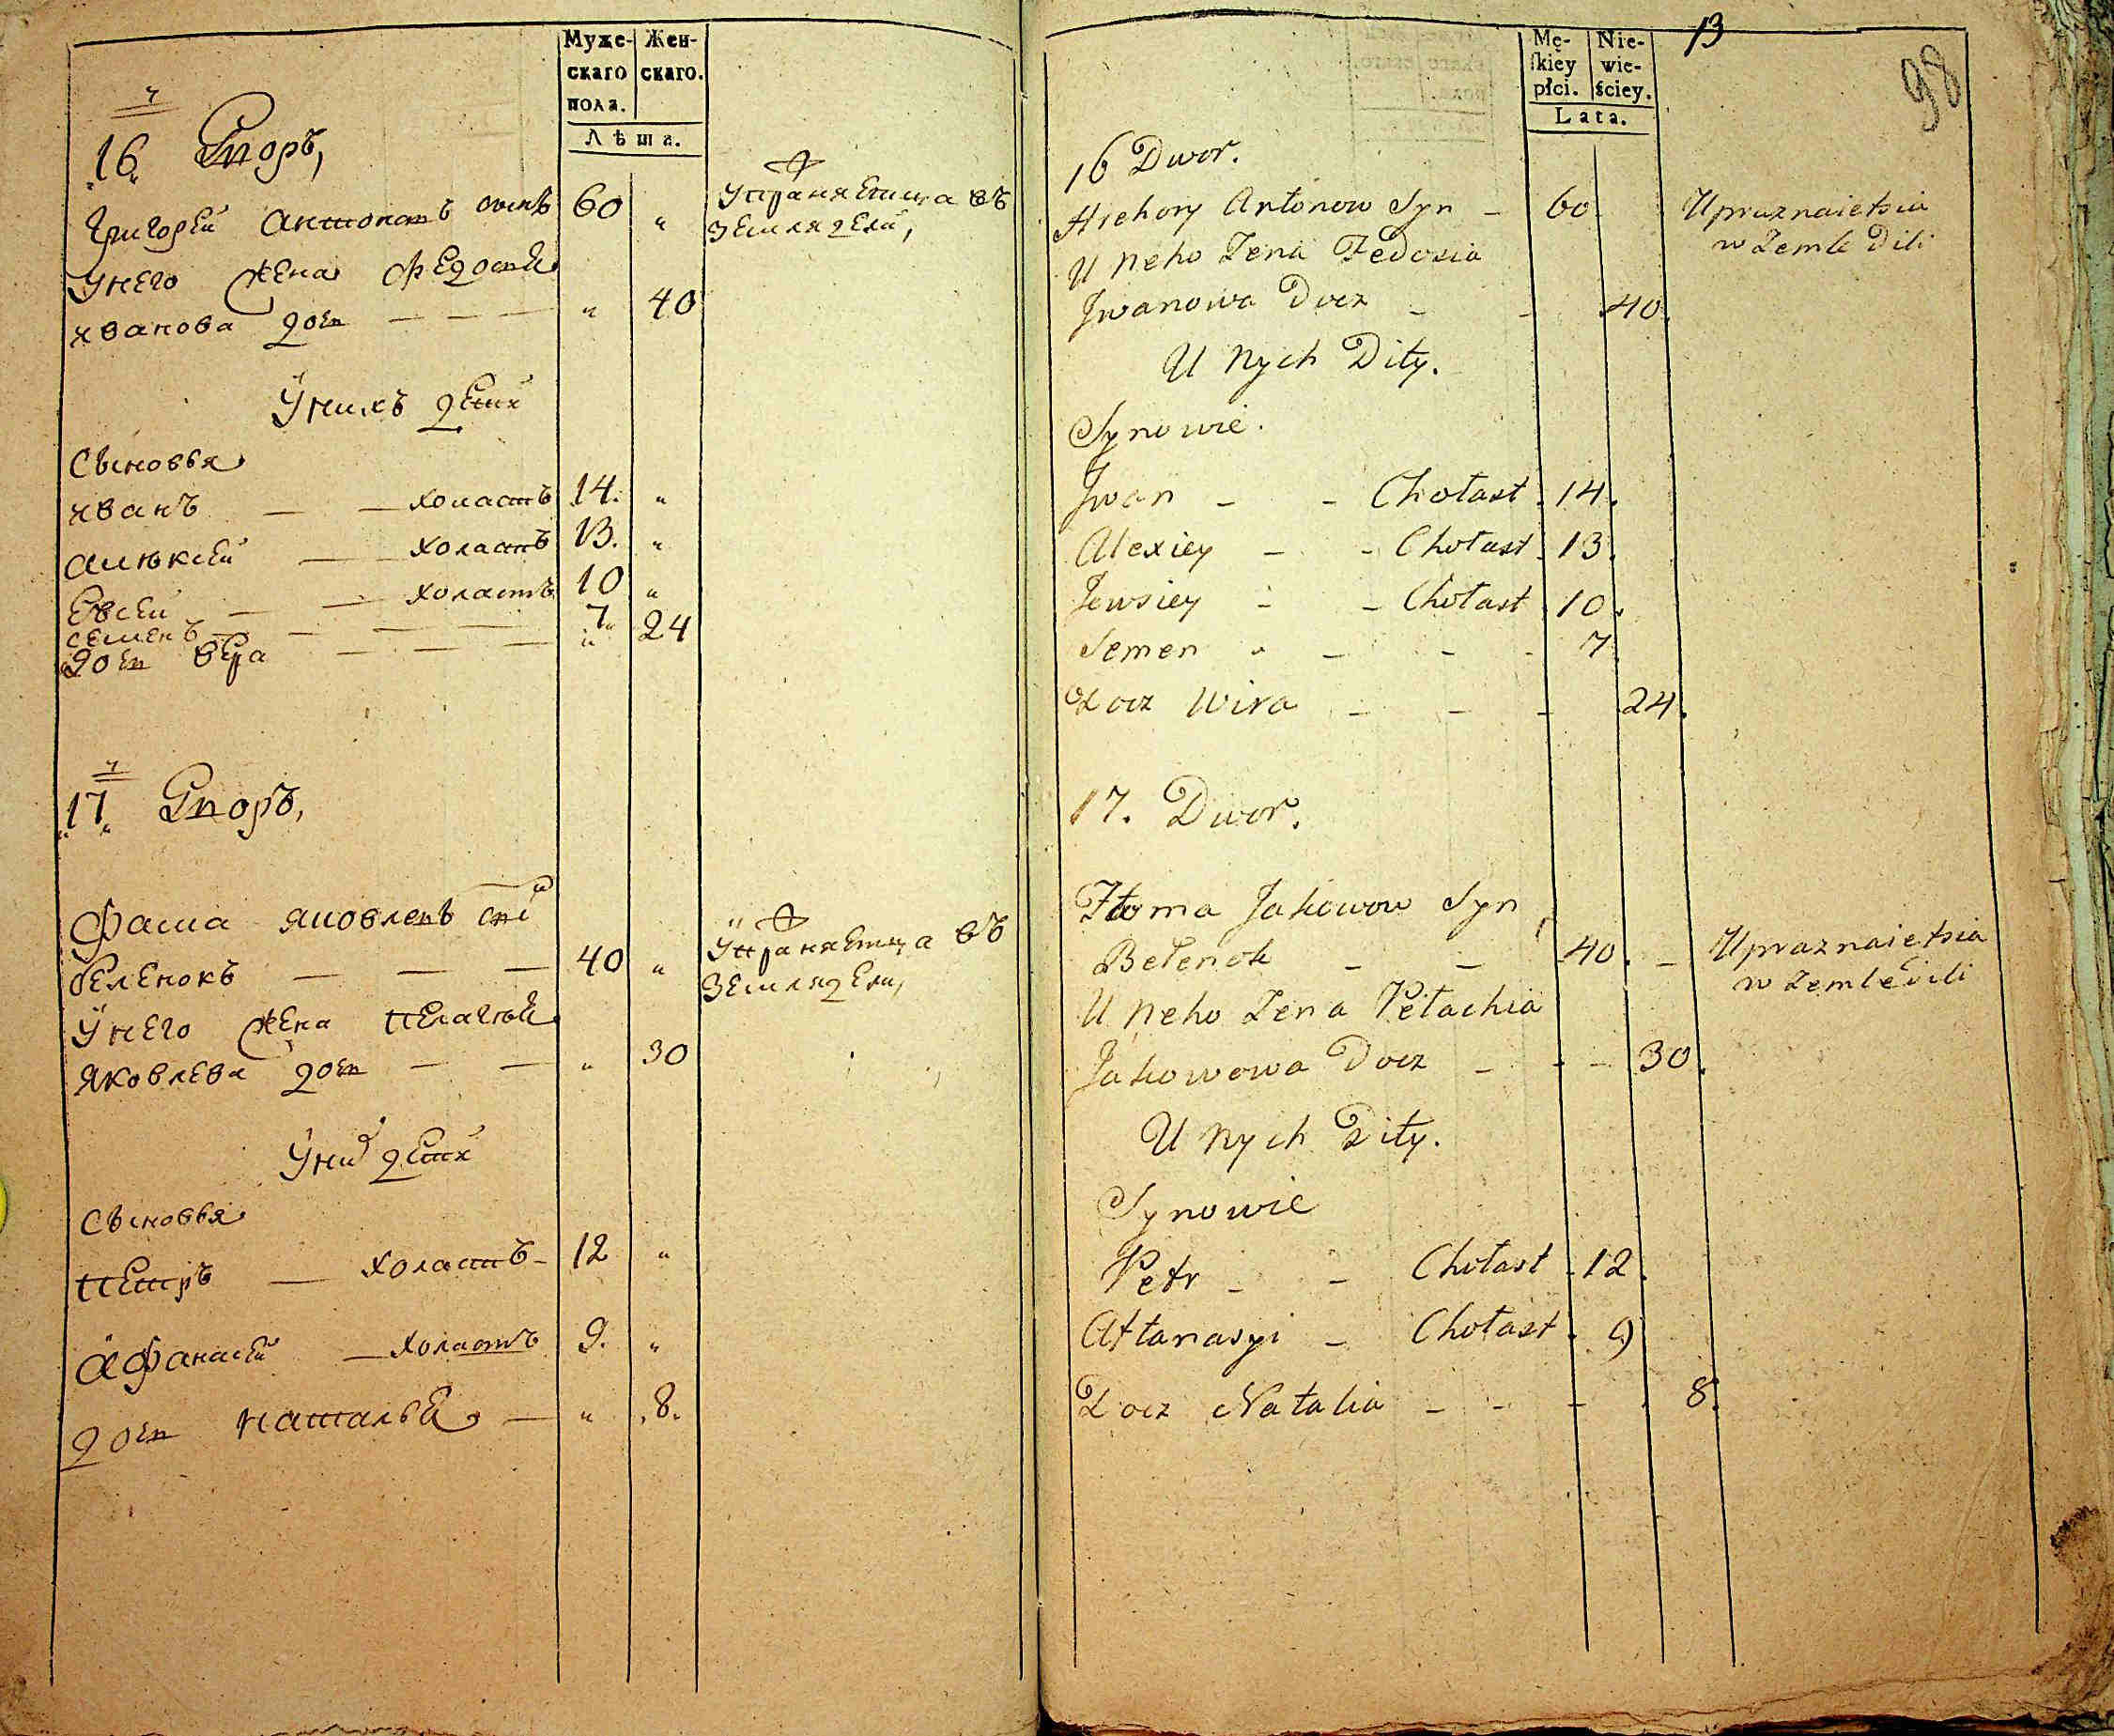 Муже-
скаго
пола.
Жен-
скаго.
Лѣта.
16 Дворъ,
Григорей антоновъ сынъ 60 "
Упражняетца въ
землядели,
У него жена федосия
иванова дочь — — — " 40
У нихъ дети
Сыновья
иванъ — — холастъ 14. "
алѣксей — холастъ 13. "
Евсей — — холастъ 10 "
семенъ — — — — 7 "
дочь вера — — — " 24
17 Дворъ,
фама яковлевъ
беленокъ — — — 40 "
Упражняетца въ
земляделi,
У него жена пелагия
яковлева дочь — — " 30
У ни дети
Сыновья
петръ — холастъ - 12 "
афанасей — холастъ 9. "
дочь наталья — " .8.
13
98
Mę-
skiey
płci.
Nie-
wie-
ściey.
Lata.
16 Dwor.
Hrehory Antonow Syn - 60
Upraznaietsia
w Zemle Dili
U neho Zena Fedosia
Jwanowa Docz - - 40.
U Nych Dity.
Synowie.
Jwan - - Chołast. 14.
Alexiey - - Chołast 13.
Jewsiey - - Chołast 10.
Semen - - - - 7
Docz Wira - - - 24.
17. Dwor.
Ftoma Jakowow Syn
Bełenok - - 40. -
Upraznaietsia
w Zemledili
U neho Zena Pełachia
Jakowowa Docz - - - 30.
U Nych Dity.
Synowie
Petr - - Chołast - 12.
Aftanasyi - Chołast. 9
Docz Natalia - - - . 8.